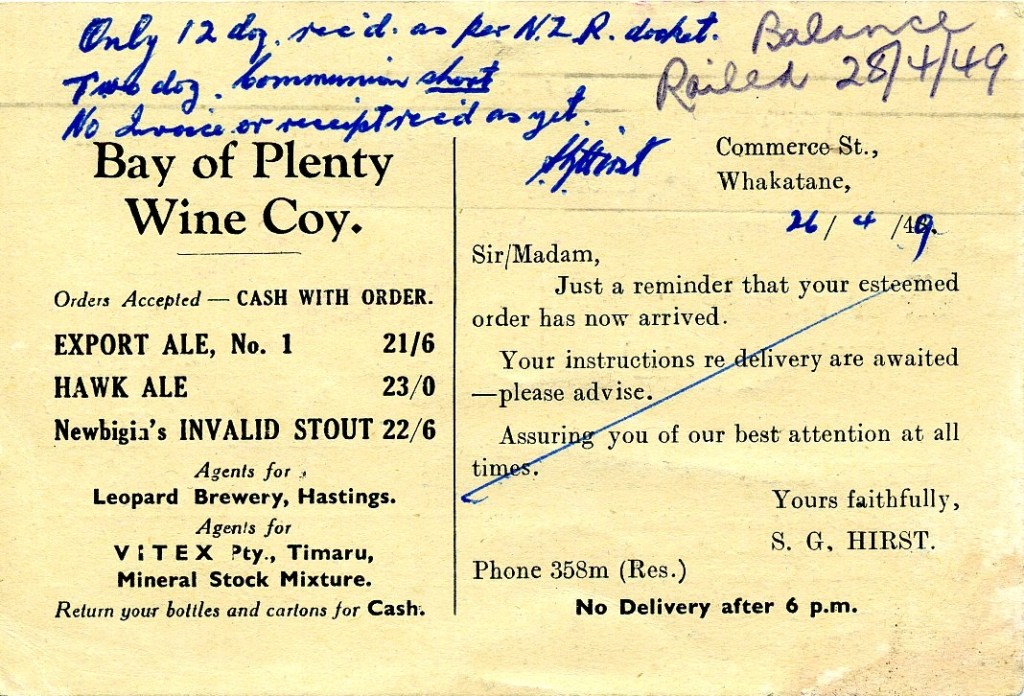 Only 12 doz. rec'd. as per N.Z.R. docket.
Two doz. Communion short
No Invoice or receipt rec'd as yet.
Balance
Railed 28/4/49
S.G. Hirst
Bay of Plenty
Wine Coy.
Orders Accepted — CASH WITH ORDER.
EXPORT ALE, No. 1 21/6
HAWK ALE 23/0
Newbigin's INVALID STOUT 22/6
Agents for
Leopard Brewery, Hastings.
Agents for
VITEX Pty., Timaru,
Mineral Stock Mixture.
Return your bottles and cartons for Cash.
Commerce St.,
Whakatane,
26/ 4 /49.
Sir/Madam,
Just a reminder that your esteemed
order has now arrived.
Your instructions re delivery are awaited
—please advise.
Assuring you of our best attention at all
times.
Yours faithfully,
S. G. HIRST.
Phone 358m (Res.)
No Delivery after 6 p.m.